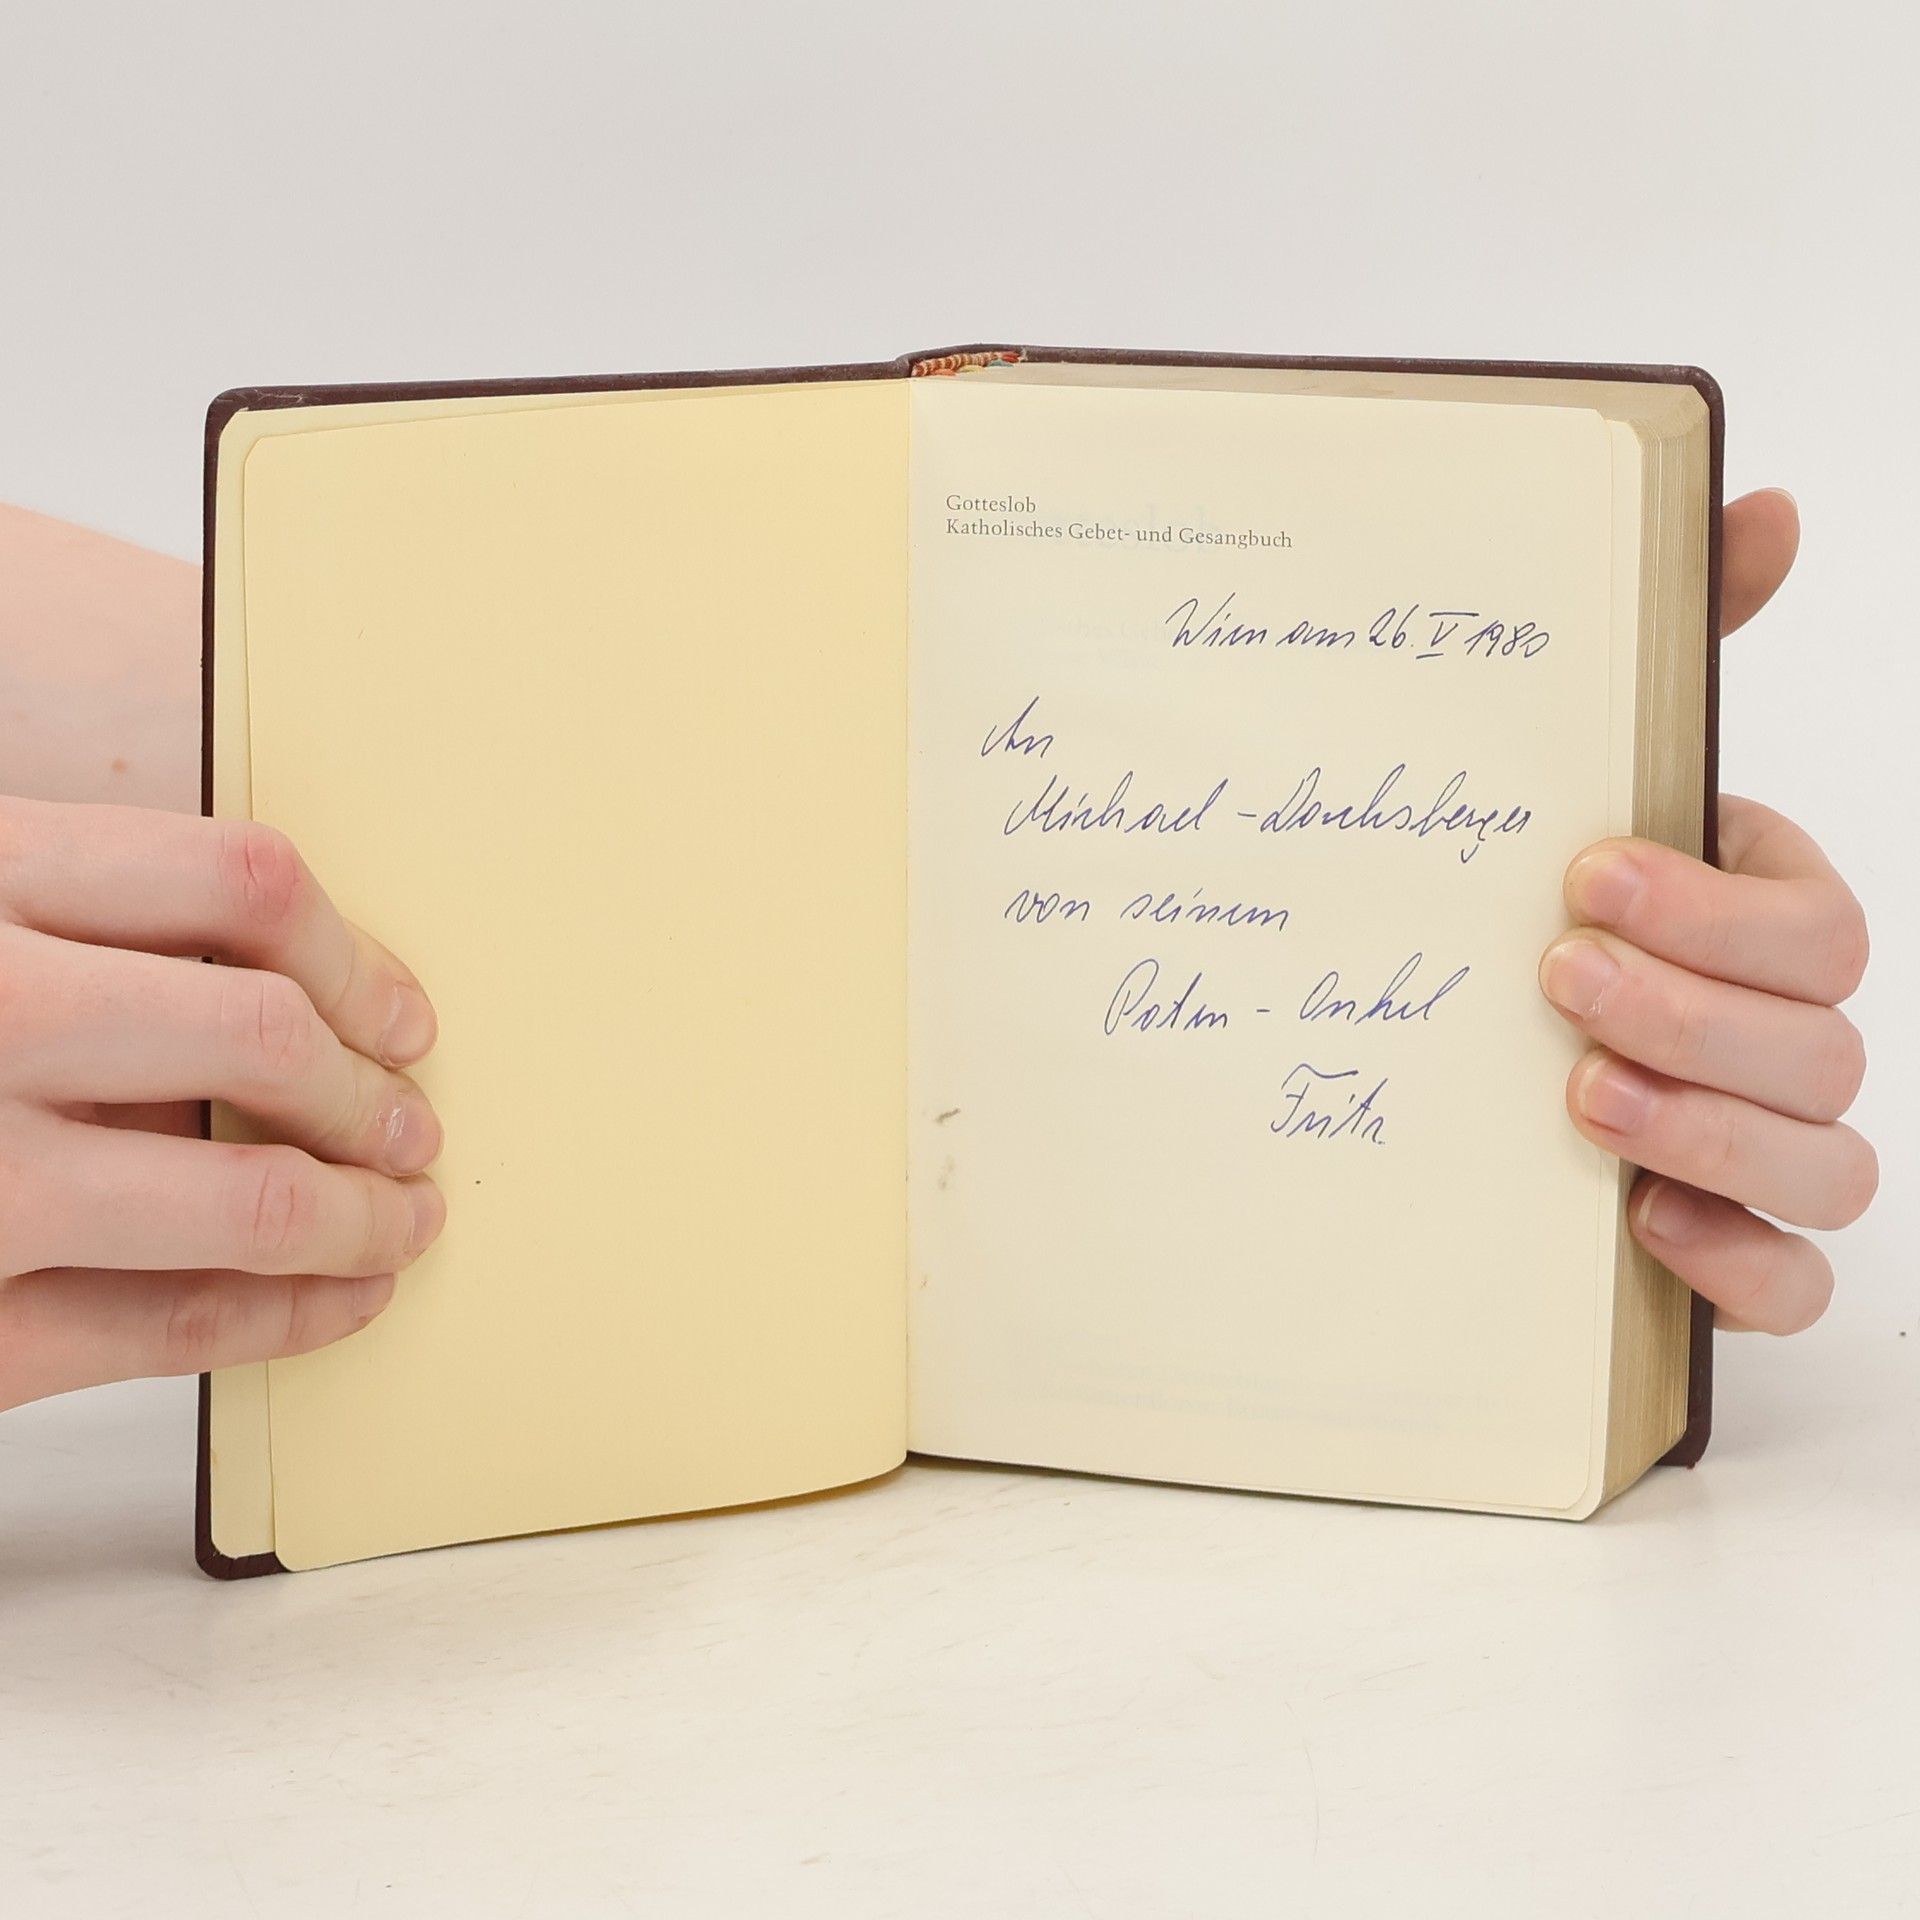 Gotteslob
Katholisches Gebet- und Gesangbuch
Wien am 26. V 1980
An
Michael - Dachsberger
von seinem
Paten - Onkel
Fritz